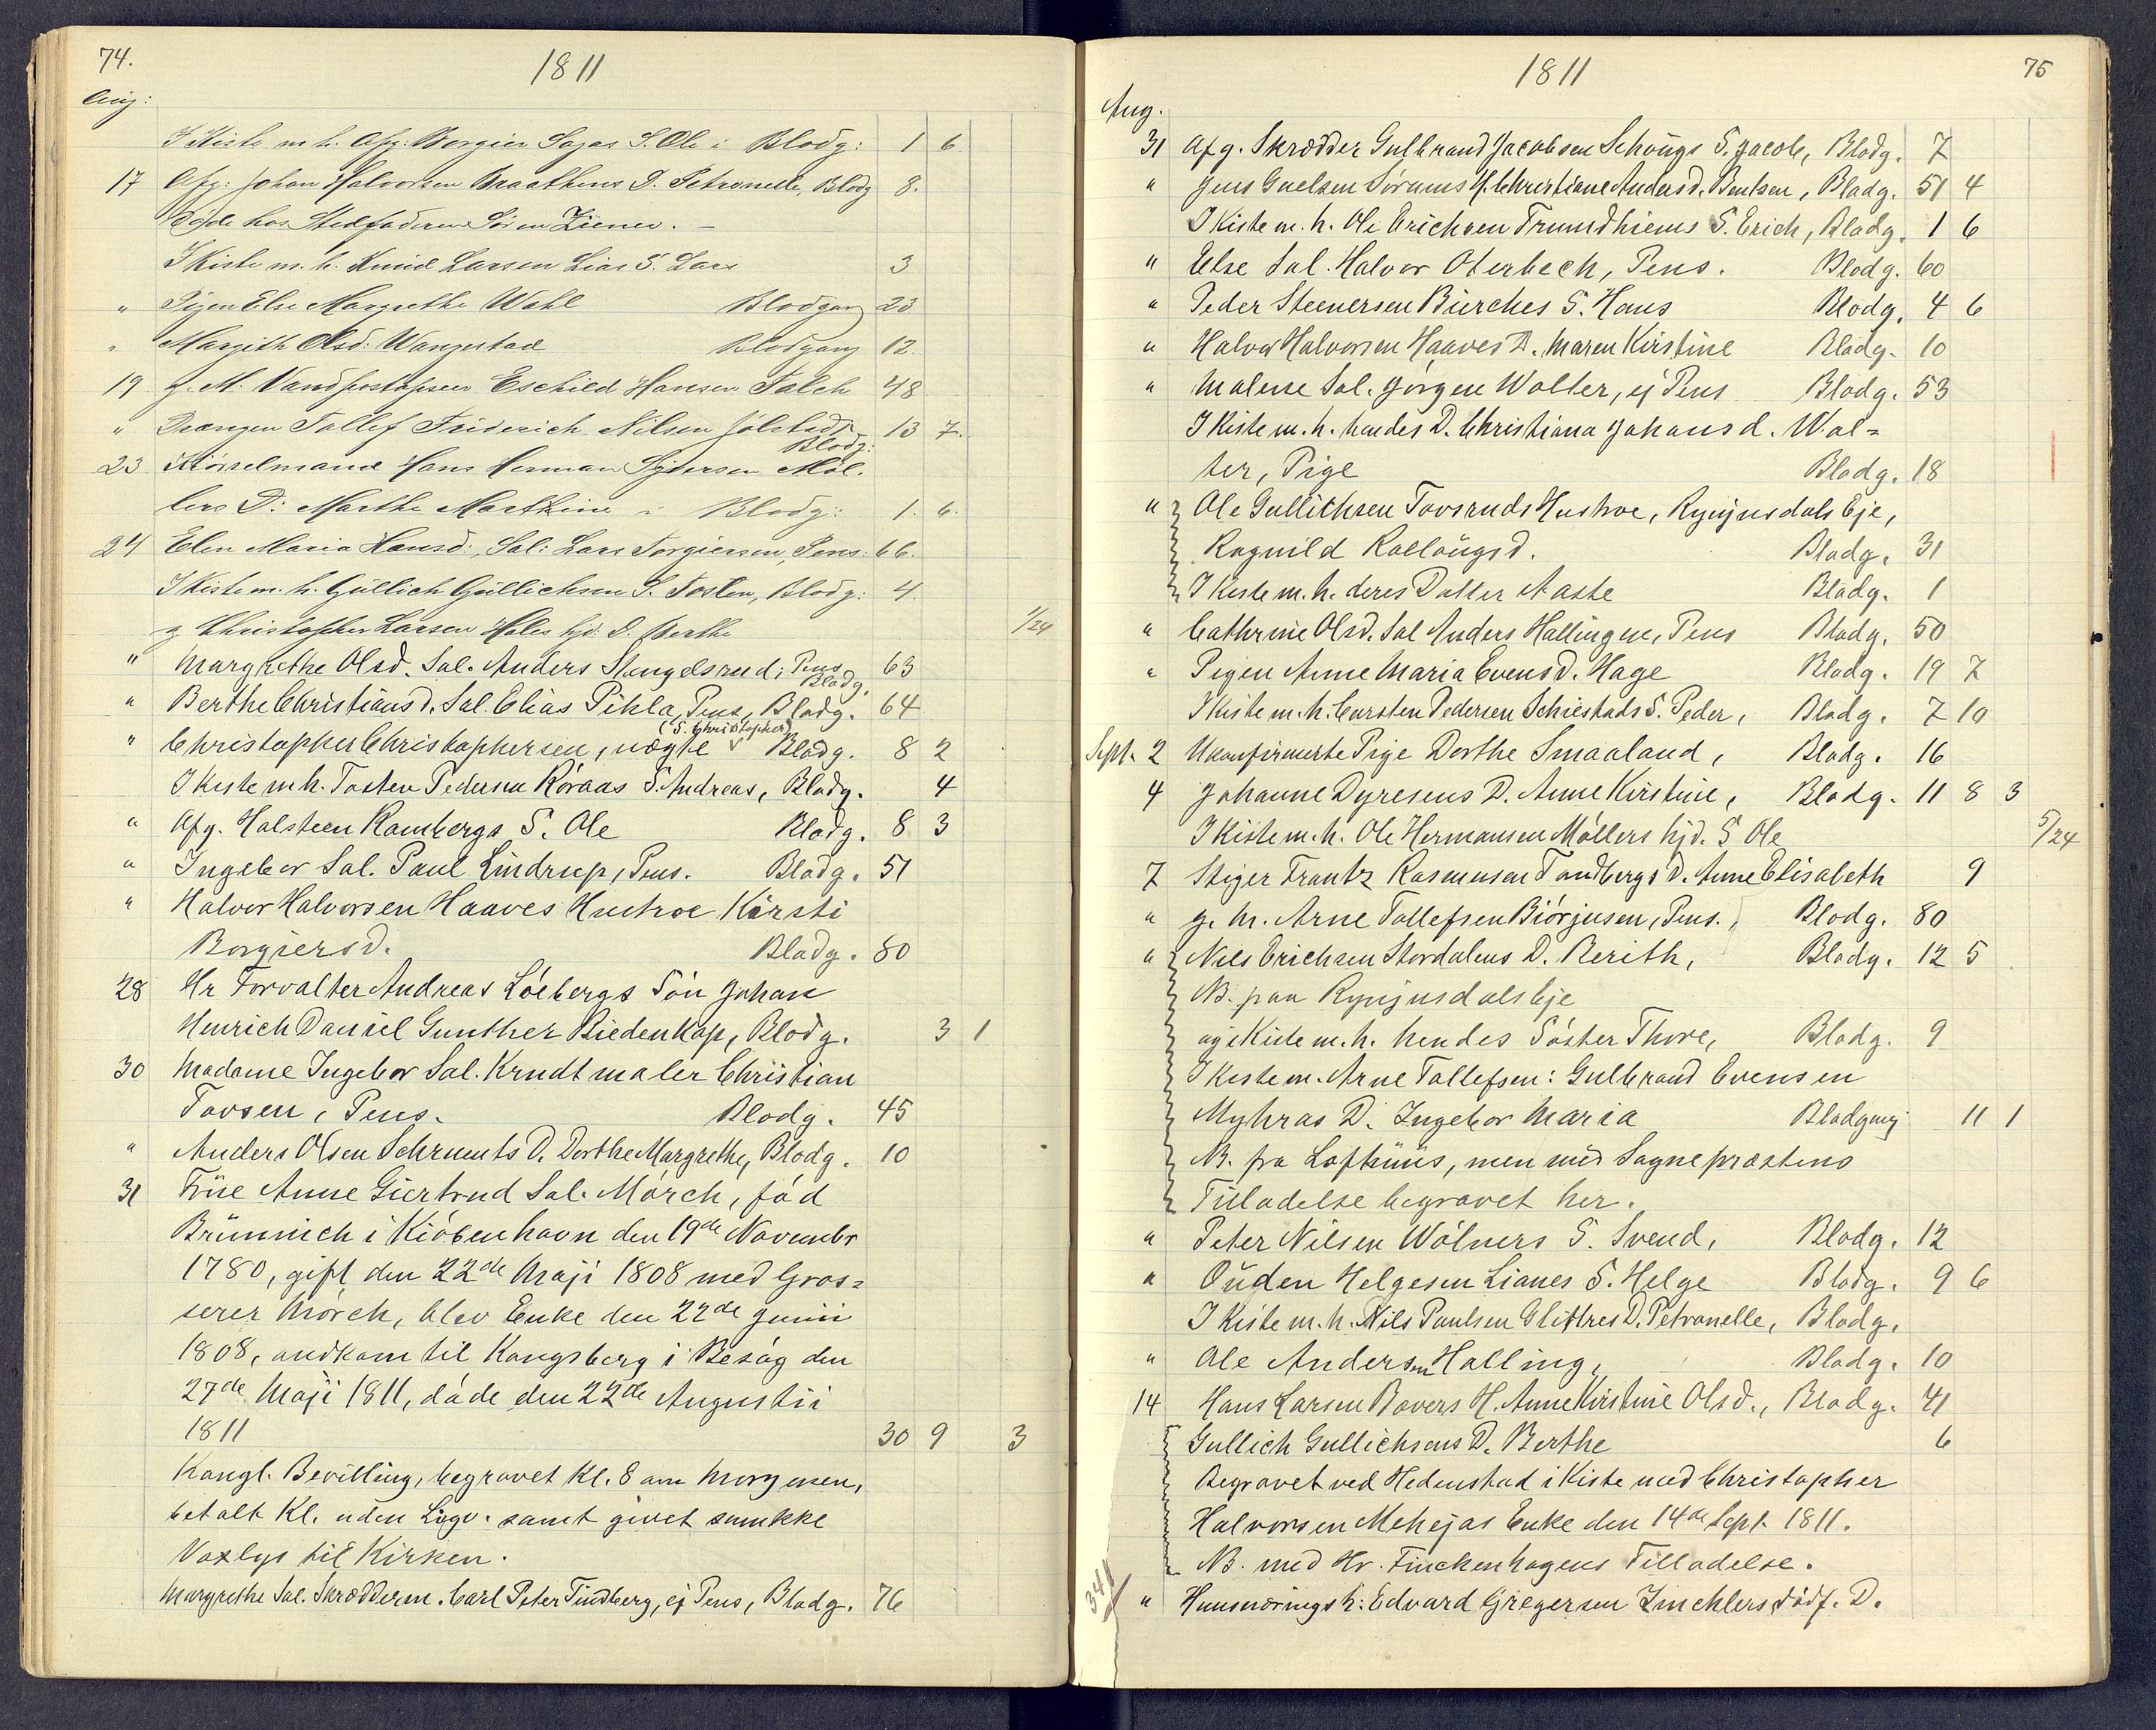 74.
1811
Aug:
I Kiste m. h. Afg: Borgier Sagas S. Ole i Blodg: 1 6
17 Afg: Johan Halvorsen Braathens D. Petronelle, Blodg 8.
Døde hos Stedfaderen Søren Ziener. –
I Kiste m. h. Knud Larsen Lias S. Lars 3
" Pigen Else Margrethe Wahl Blodgang 23
" Margith Olsd: Wangestad Blodgang 12.
19 g. M. Eschild Hansen Falch 48
" Drængen Tollef Friderich Nilsen Jølstad, Blodg: 13 7.
23 Kiørselmand Hans Herman Syversen Møl.
lers D: Marthe Marthine i Blodg: 1. 6.
24 Elen Maria Hansd: Sal: Lars Torgiersen, Pens: 66.
I Kiste m. h. Güllich Güllichsen S. Tosten, Blodg: 4.
g Christopher Larsen Holes hjd: D. Berthe 1/24
" Margrethe Olsd. Sal. Anders Stengelsrud, Pens Blodg. 63
" Berthe Christiansd. Sal. Elias Pihla, Pens, Blodg. 64
(S. Christopher)
" Christopher Christophersen, uægte v Blodg. 8 2
I Kiste m h. Tosten Pedersen Røraas S. Andreas, Blodg. 4
" Afg. Halsteen Rambergs S. Ole Blodg. 8 3
" Ingebor Sal. Paul Lindrup, Pens. Blodg. 51
" Halvor Halvorsen Haaves Hustroe Kirsti
Borgiersd. Blodg. 80
28 Hr Forvalter Andreas Løebergs Søn Johan
Henrich Daniel Gunther Biedenkap, Blodg. 3 1
30 Madame Ingebor Sal. Krudtmaler Christian
Tovsen, Pens. Blodg. 45
" Anders Olsen Schrumts D. Dorthe Margrethe, Blodg. 10
31 Frue Anne Giertrud Sal. Mørch, fød
Brünnich i Kiøbenhavn den 19de Novembr
1780, gift den 22de Maji 1808 med Gros=
serer Mørch, blev Enke den 22de Junii
1808, andkom til Kongsberg i Besøg den
27de Maji 1811, døde den 22de Augustii
1811 30 9 3
Kongl. Bevilling, begravet Kl. 8 om Morgenen,
betalt Kl. uden Ligv. samt givet smukke
Voxlys til Kirken.
Margrethe Sal. Skrædderm. Carl Peter Tindberg, ej Pens, Blodg. 76
1811
75
Aug.
31 Afg. Skrædder Gulbrand Jacobsen Schougs S. Jacob, Blodg. 7
" Jens Sørums H. Christiane Andersd. Bentsen, Blodg. 51 4
I Kiste m. h. Ole Erichsen Trundhiems S. Erich, Blodg. 1 6
" Else Sal. Halvor Oterbech, Pens. Blodg. 60
" Peder Steenersen Bierches S. Hans Blodg. 4 6
" Halvor Halvorsen Haaves D. Maren Kirstine Blodg. 10
" Malene Sal. Jørgen Wolter, ej Pens Blodg. 53
I Kiste m. h. hendes D. Christiana Johansd. Wol=
ter, Pige Blodg. 18
" Ole Gullichsen Tovsruds Hustroe, Rynjusdals Eje,
Ragnild Rolløugsd. Blodg. 31
I Kiste m. h. deres Datter Aaste Blodg. 1
" Cathrine Olsd. Sal Anders Hallingen, Pens Blodg. 50
" Pigen Anne Maria Evensd. Hage Blodg. 19 7
I Kiste m. h. Carsten Pedersen Schiestads S. Peder, Blodg. 7 10
Sept. 2 Ukonfirmerte Pige Dorthe Smaaland, Blodg. 16
4 Johanne Dyresens D. Anne Kirstine, Blodg. 11 8 3
I Kiste m. h. Ole Hermansen Møllers hjd. S Ole 5/24
7 Stiger Frantz Rasmusen Tandbergs D. Anne Elisabeth 9
" g. m. Arne Tollefsen Biørjusen, Pens., Blodg. 80
" Nils Erichsen Stordalens D. Berith, Blodg. 12 5
NB. paa Rynjusdals Eje
og i Kiste m. h. hendes Søster Thore, Blodg. 9
I Kiste m. Arne Tollefsen: Gulbrand Evensen
Myhras D. Ingebor Maria Blodgang 11 1
NB. fra Lofthuus, men med Sognepræstens
Tilladelse begravet her.
" Peter Nilsen Wølners S. Svend, Blodg. 12
" Ouden Helgesen Lianes S. Helge Blodg. 9 6
I Kiste m. h. Nils Paulsen Glittres D. Petronelle, Blodg.
" Ole Andersen Halling, Blodg. 10
14 Hans Larsen Bovers H. Anne Kirstine Olsd., Blodg. 41
Gullich Gullichsens D. Berthe 6
Begravet ved Hedenstad i Kiste med Christopher
Halvorsen Mehejas Enke den 14de Sept. 1811.
NB. med Hr. Finckenhagens Tilladelse.
341
" Huusværingsk: Edvard Gregersen Zinchlers dødf. D.